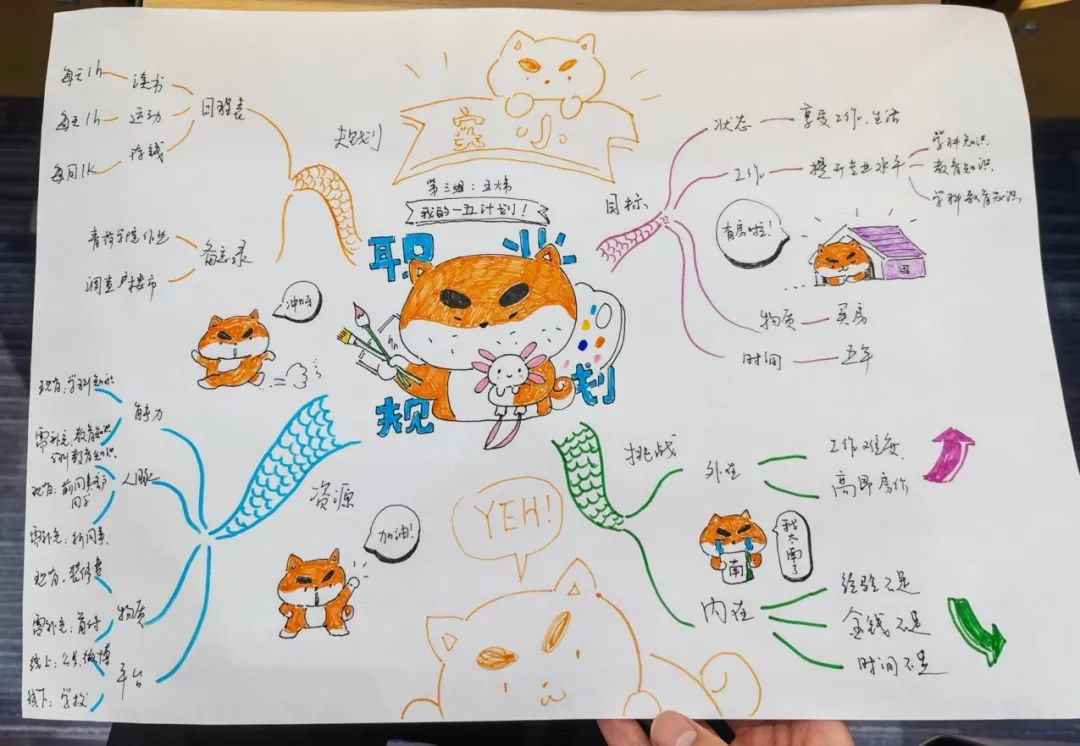 第三组：王炜
我的一五计划！
职业
规划
规划
日程表
读书
每天1h
运动
每天1h
存钱
每月1K
备忘录
青荷学院作业
调查楼市
冲呀
目标
状态
享受工作、生活
工作
提升专业水平
学科知识
教育知识
学科教育知识
有房啦！
物质
买房
时间
五年
资源
能力
现有：学科知识
需补充：教育知识
学科教育知识
人脉
现有：前同事
同学
需补充：新同事
物质
现有：装修费
需补充：首付
平台
线上：公号、微博
线下：学校
加油！
YEH!
挑战
外在
工作难度
高昂房价
我太南了
南
内在
经验不足
金钱不足
时间不足